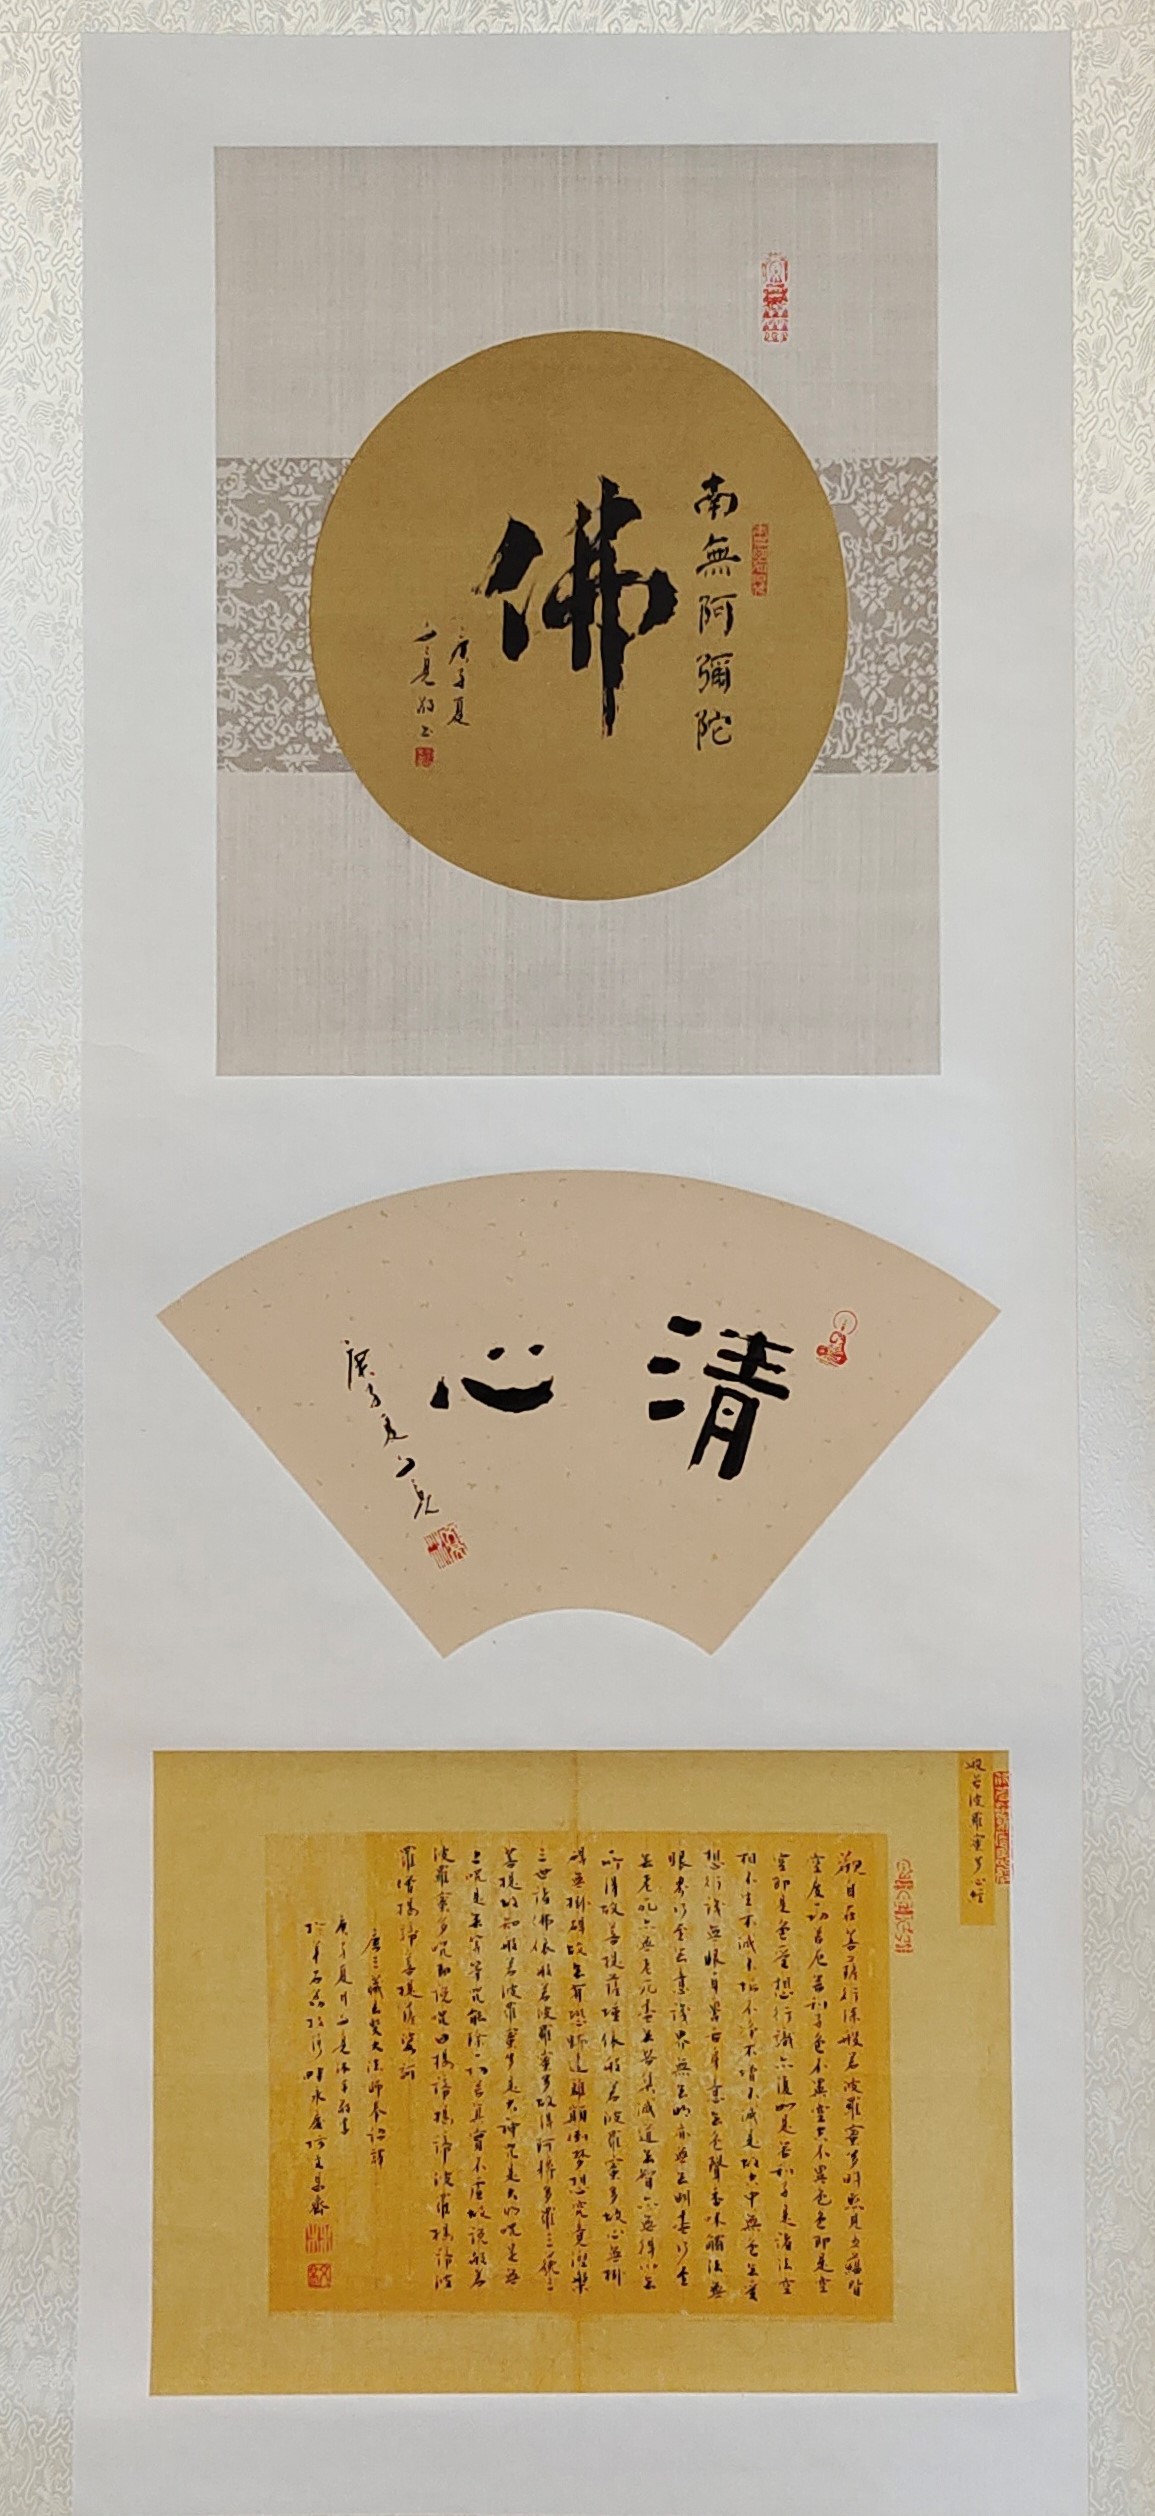 南無阿彌陀
佛
庚子夏
清心
庚子夏
般若波羅蜜多心經
觀自在菩薩行深般若波羅蜜多時照見五蘊皆
空度一切苦厄舍利子色不異空空不異色色即是空
空即是色受想行識亦復如是舍利子是諸法空
相不生不滅不垢不淨不增不減是故空中無色無受
想行識無眼耳鼻舌身意無色聲香味觸法無
眼界乃至無意識界無無明亦無無明盡乃至
無老死亦無老死盡無苦集滅道無智亦無得以無
所得故菩提薩埵依般若波羅蜜多故心無掛
礙無掛礙故無有恐怖遠離顛倒夢想究竟涅槃
三世諸佛依般若波羅蜜多故得阿耨多羅三藐三
菩提故知般若波羅蜜多是大神咒是大明咒是無
上咒是無等等咒能除一切苦真實不虛故說般若
波羅蜜多咒即說咒曰揭諦揭諦波羅揭諦波
羅僧揭諦菩提薩婆訶
唐三藏玄奘大法師奉詔譯
庚子夏月